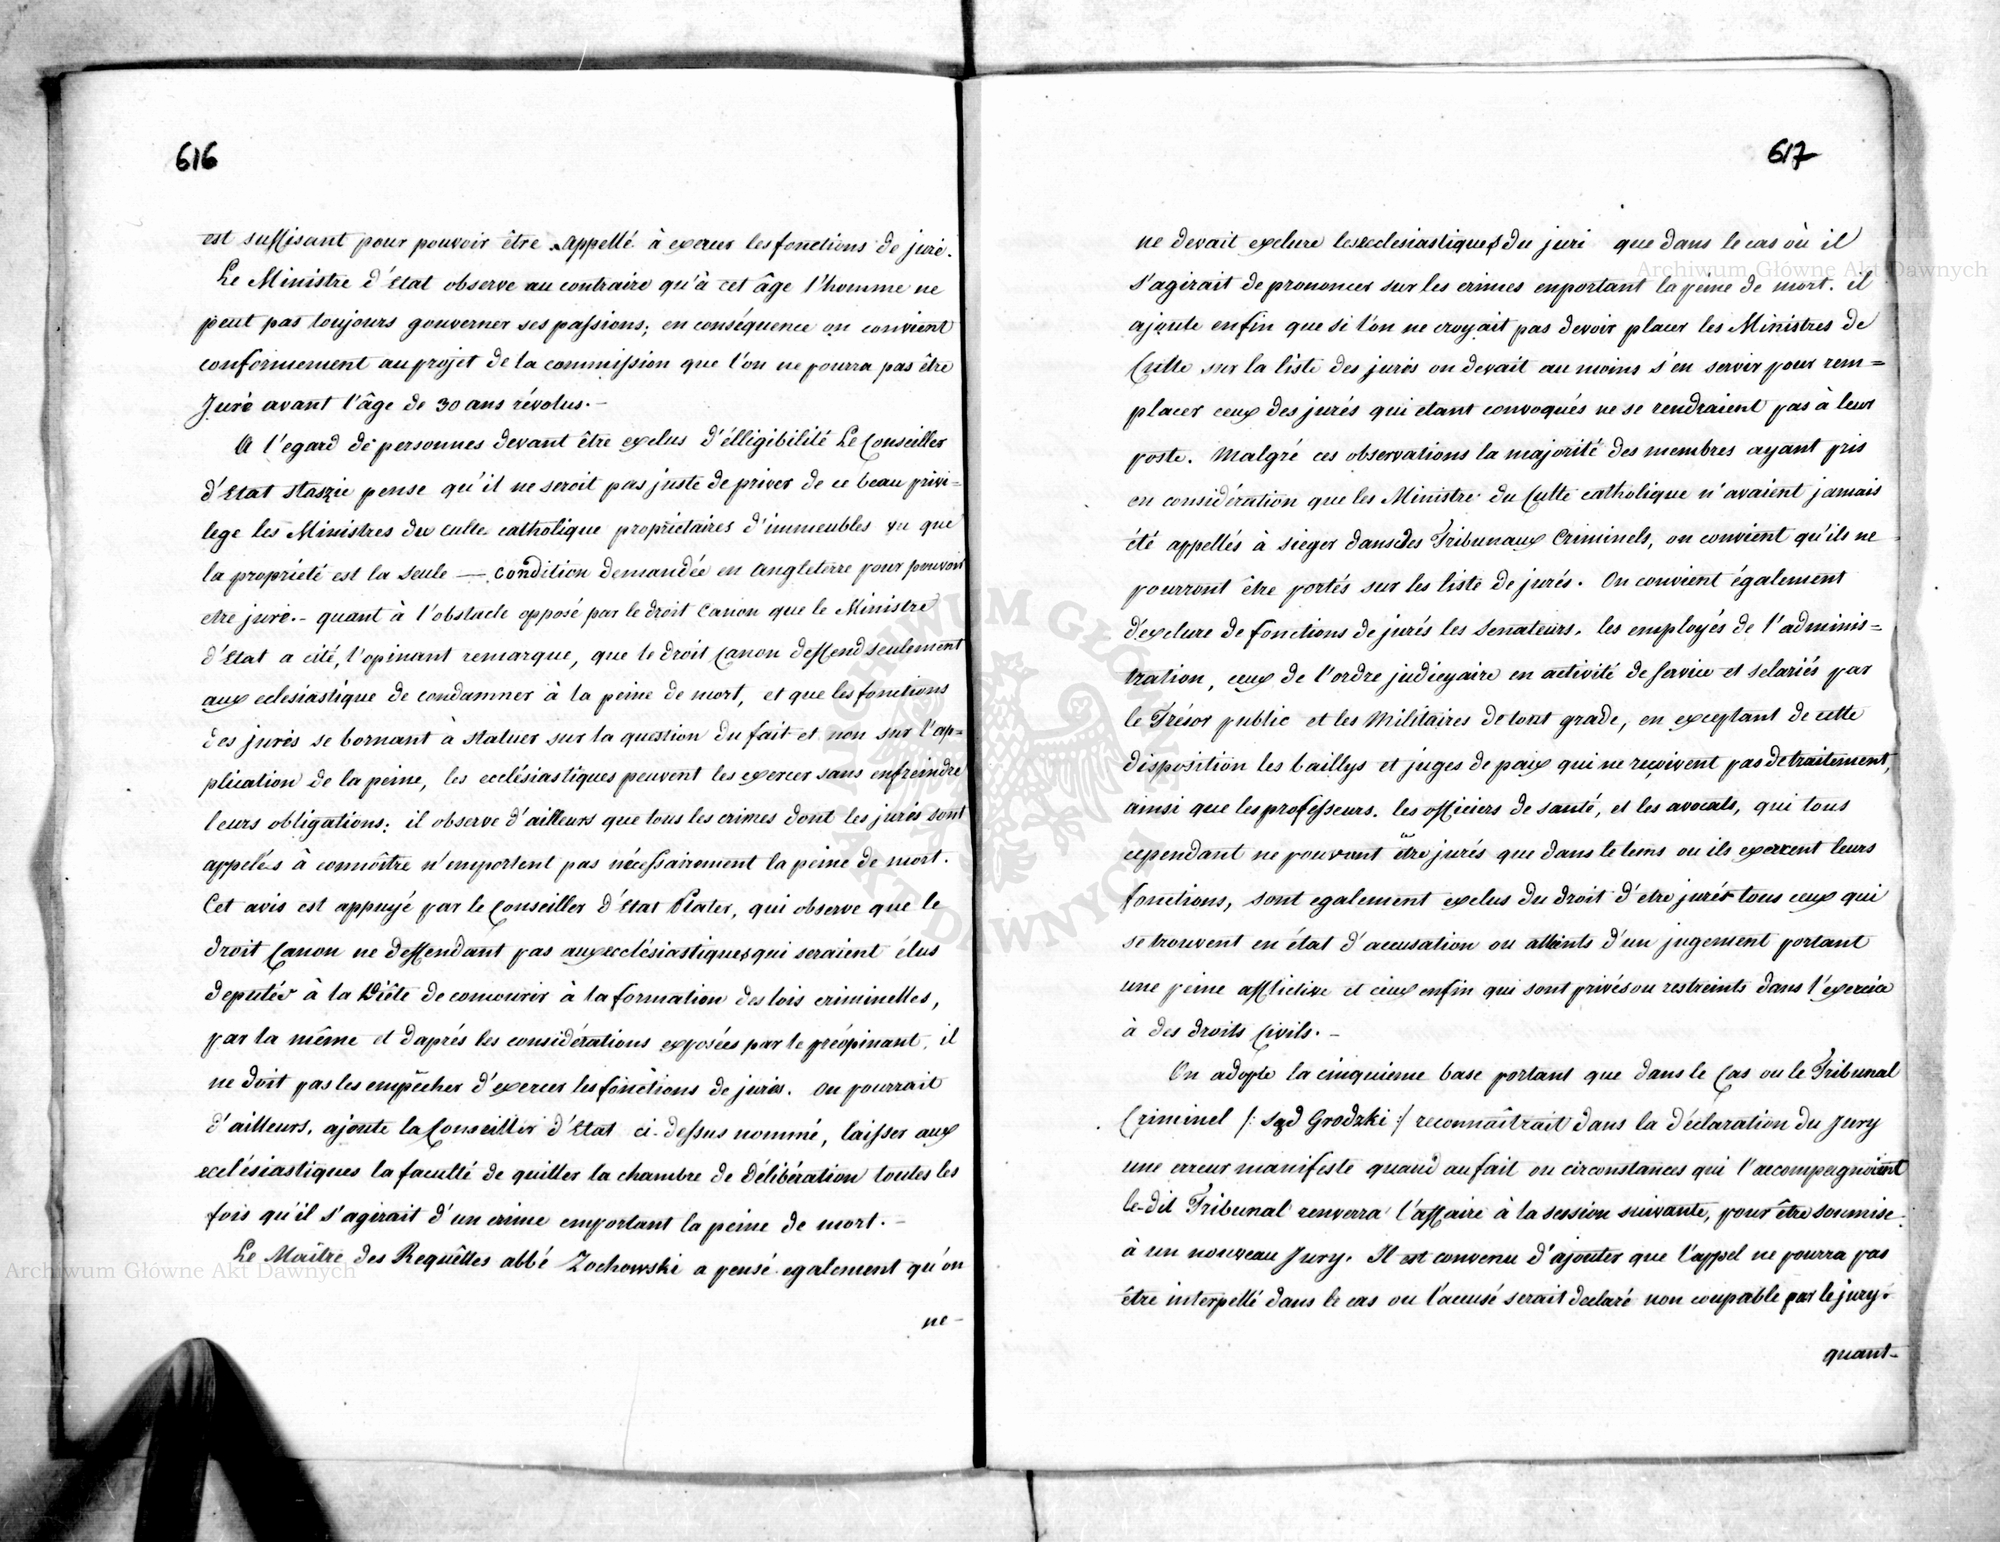 616
est suffisant pour pouvoir être appellé à exercer les fonctions de juré.
Le Ministre d'Etat observe au contraire qu'à cet âge l'homme ne
peut pas toujours gouverner ses passions; en conséquence on convient
conformement au projet de la commission que l'on ne pourra pas être
Juré avant l'âge de 30 ans révolus.-
A l'egard de personnes devant être exclus d'élligibilité Le Conseiller
d'Etat Staszic pense qu'il ne seroit pas juste de priver de ce beau privi-
lege les Ministres du culte catholique propriétaires d'immeubles vu que
la propriété est la seule — condition demandée en Angleterre pour pouvoir
etre juré.- quant à l'obstacle opposé par le droit Canon que le Ministre
d'Etat a cité, l'opinant remarque, que le droit Canon deffend seulement
aux eclesiastique de condamner à la peine de mort, et que les fonctions
des jurés se bornant à statuer sur la question du fait et non sur l'ap=
plication de la peine, les ecclésiastiques peuvent les exercer sans enfreindre
leurs obligations; il observe d'ailleurs que tous les crimes dont les jurés sont
appelés à connoître n'emportent pas nécessairement la peine de mort.
Cet avis est appuyé par le Conseiller d'Etat Plater, qui observe que le
droit Canon ne deffendant pas aux ecclésiastiques qui seraient élus
deputés à la Diète de concourir à la formation des lois criminelles,
par la même et daprés les considérations exposées par le préopinant, il
ne doit pas les empêcher d'exercer les fonctions de jurés. On pourrait
d'ailleurs, ajoute la Conseiller d'Etat ci-dessus nommé, laisser aux
ecclésiastiques la faculté de quitter la chambre de Délibération toutes les
fois qu'il s'agirait d'un crime emportant la peine de mort.-
Le Maître des Requêttes abbé Zochowski a pensé egalement qu'on
ne-
617
ne devait exclure les ecclesiastiques du juri que dans le cas où il
s'agirait de prononcer sur les crimes enportant la peine de mort. il
ajoute enfin que si l'on ne croyait pas devoir placer les Ministres de
Culte sur la liste des jurés on devait au moins s'en servir pour rem=
placer ceux des jurés qui etant convoqués ne se rendraient pas à leur
poste. Malgré ces observations la majorité des membres ayant pris
en considération que les Ministre du Culte catholique n'avaient jamais
été appellés à sieger dans des Tribunaux Criminels, on convient qu'ils ne
pourront être portés sur les liste de jurés. On convient également
d'exclure de fonctions de jurés les Senateurs, les employés de l'adminis=
tration, ceux de l'ordre judicyaire en activité de service et selariés par
le Trésor public et les Militaires de tout grade, en exceptant de cette
disposition les baillys et juges de paix qui ne reçoivent pas de traitement,
ainsi que les professeurs, les officiers de santé, et les avocats, qui tous
cependant ne pouvant être jurés que dans le tems ou ils exercent leurs
fonctions, sont egalement exclus du droit d'etre jurés tous ceux qui
se trouvent en état d'accusation ou atteints d'un jugement portant
une peine afflictive et ceux enfin qui sont privés ou restreints dans l'exercice
à des droits Civils.-
On adopte la cinquieme base portant que dans le Cas ou le Tribunal
Criminel /: Sąd Grodzki :/ reconnaîtrait dans la déclaration du Jury
une erreur manifeste quand au fait ou circonstances qui l'accompagnoient
le-dit Tribunal renverra l'affaire à la session suivante, pour être soumise
à un nouveau Jury. Il est convenu d'ajouter que l'appel ne pourra pas
être interpellé dans le cas ou l'accusé serait declaré non coupable par le jury.
quant-
Archiwum Główne Akt Dawnych
Archiwum Główne Akt Dawnych
ARCHIWUM GŁÓWNE AKT DAWNYCH